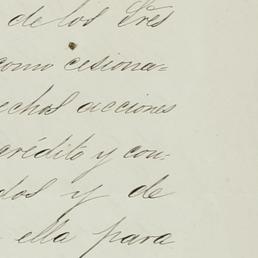 de los Sres
como cesiona=
echos acciones
crédito y con-
dos y de
ella para